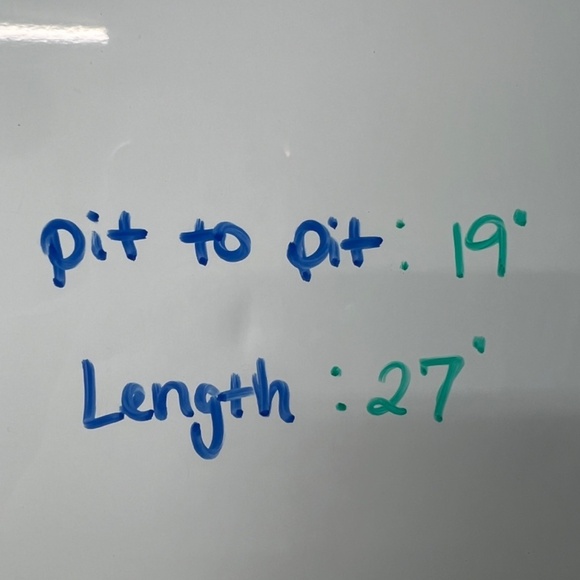 pit to pit: 19'
Length: 27'